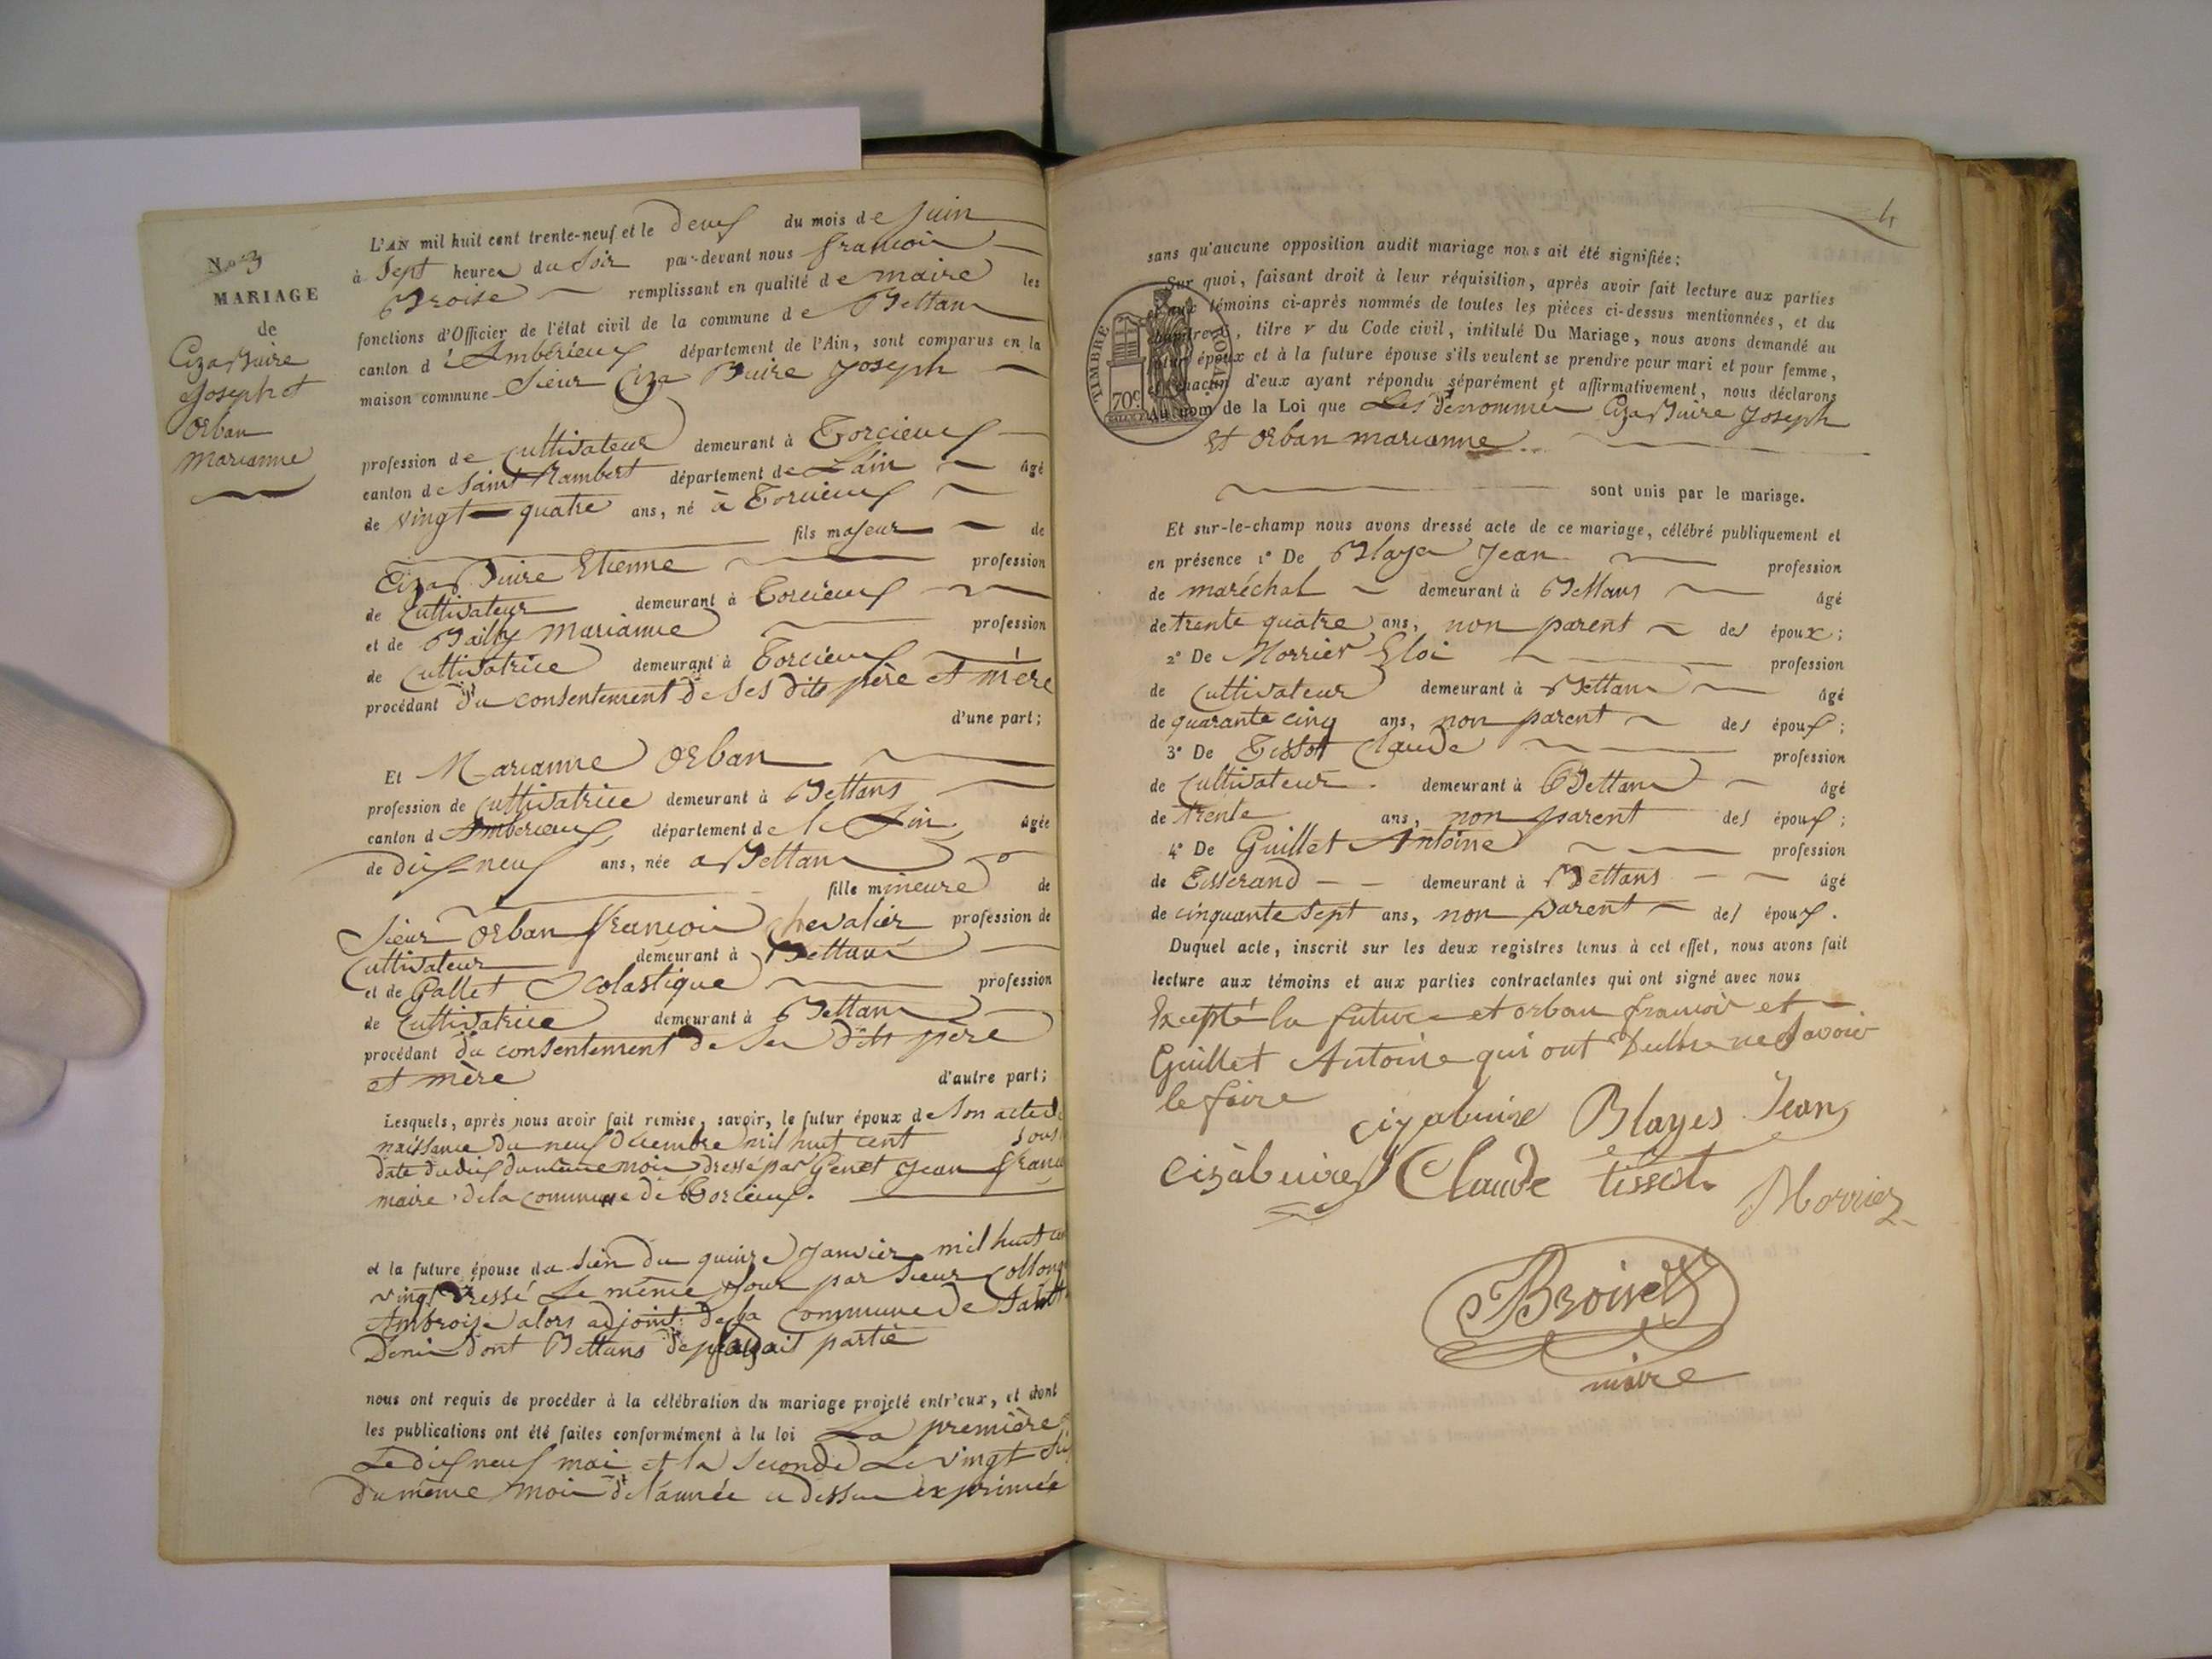 N.o 3
MARIAGE
de
Ciza Buire
Joseph et
Orban
Marianne
L'AN mil huit cent trente-neuf et le deux du mois de Juin
à Sept heures du Soir par-devant nous françois
Broise remplissant en qualité de maire les
fonctions d'Officier de l'état civil de la commune de Bettans
canton d'Ambérieux département de l'Ain, sont comparus en la
maison commune Sieur Ciza Buire Joseph
profession de cultivateur demeurant à Torcieux
canton de Saint Rambert département de L'ain âgé
de vingt-quatre ans, né à Torcieux
fils majeur de
Ciza Buire Etienne profession
de Cultivateur demeurant à Torcieux
et de Bailly Marianne profession
de Cultivatrice demeurant à Torcieux
procédant du consentement de ses dits père et mère
d'une part;
Et Marianne Orban
profession de cultivatrice demeurant à Bettans
canton d'Ambérieux département de l'Ain âgée
de dix-neuf ans, née a Bettans
fille mineure de
Sieur Orban françois Chevalier profession de
Cultivateur demeurant à Bettans
et de Gallet Scolastique profession
de Cultivatrice demeurant à Bettans
procédant du consentement de Ses dits père
et mère d'autre part;
Lesquels, après nous avoir fait remise, savoir, le futur époux de Son acte de
naissance du neuf décembre mil huit cent sous
date du dix du même mois dressé par Genet Jean
maire de la commune de Torcieux.
et la future épouse du sien du quinze Janvier mil huit cent
vingt dressé Le même Jour par Sieur
Ambroise alors adjoint de la Commune de Saint
Denis dont Bettans faisait partie
nous ont requis de procéder à la célébration du mariage projeté entr'eux, et dont
les publications ont été faites conformément à la loi La première
Le dix neuf mai et la seconde Le vingt Six
du même mois de l'année ci dessus exprimée
4
sans qu'aucune opposition audit mariage nous ait été signifiée;
TIMBRE ROYAL
70c
Sur quoi, faisant droit à leur réquisition, après avoir fait lecture aux parties
et aux témoins ci-après nommés de toutes les pièces ci-dessus mentionnées, et du
chapitre VI, titre V du Code civil, intitulé Du Mariage, nous avons demandé au
futur époux et à la future épouse s'ils veulent se prendre pour mari et pour femme,
et chacun d'eux ayant répondu séparément et affirmativement, nous déclarons
Au nom de la Loi que Les dénommés Ciza Buire Joseph
et Orban marianne
sont unis par le mariage.
Et sur-le-champ nous avons dressé acte de ce mariage, célébré publiquement et
en présence 1° De Blayes Jean profession
de maréchal demeurant à Bettans âgé
de trente quatre ans, non parent des époux;
2° De Morrier Eloi profession
de Cultivateur demeurant à Bettans âgé
de quarante cinq ans, non parent des époux;
3° De Tissot Claude profession
de Cultivateur demeurant à Bettans âgé
de trente ans, non parent des époux;
4° De Guillet Antoine profession
de Tisserand demeurant à Bettans âgé
de cinquante sept ans, non parent des époux.
Duquel acte, inscrit sur les deux registres tenus à cet effet, nous avons fait
lecture aux témoins et aux parties contractantes qui ont signé avec nous
Excepté la future et orban françois et
Guillet Antoine qui ont ne Savoir
le faire
cizabuire Blayes Jean
cizàbuire Claude tissot Morrier
Broise
mire